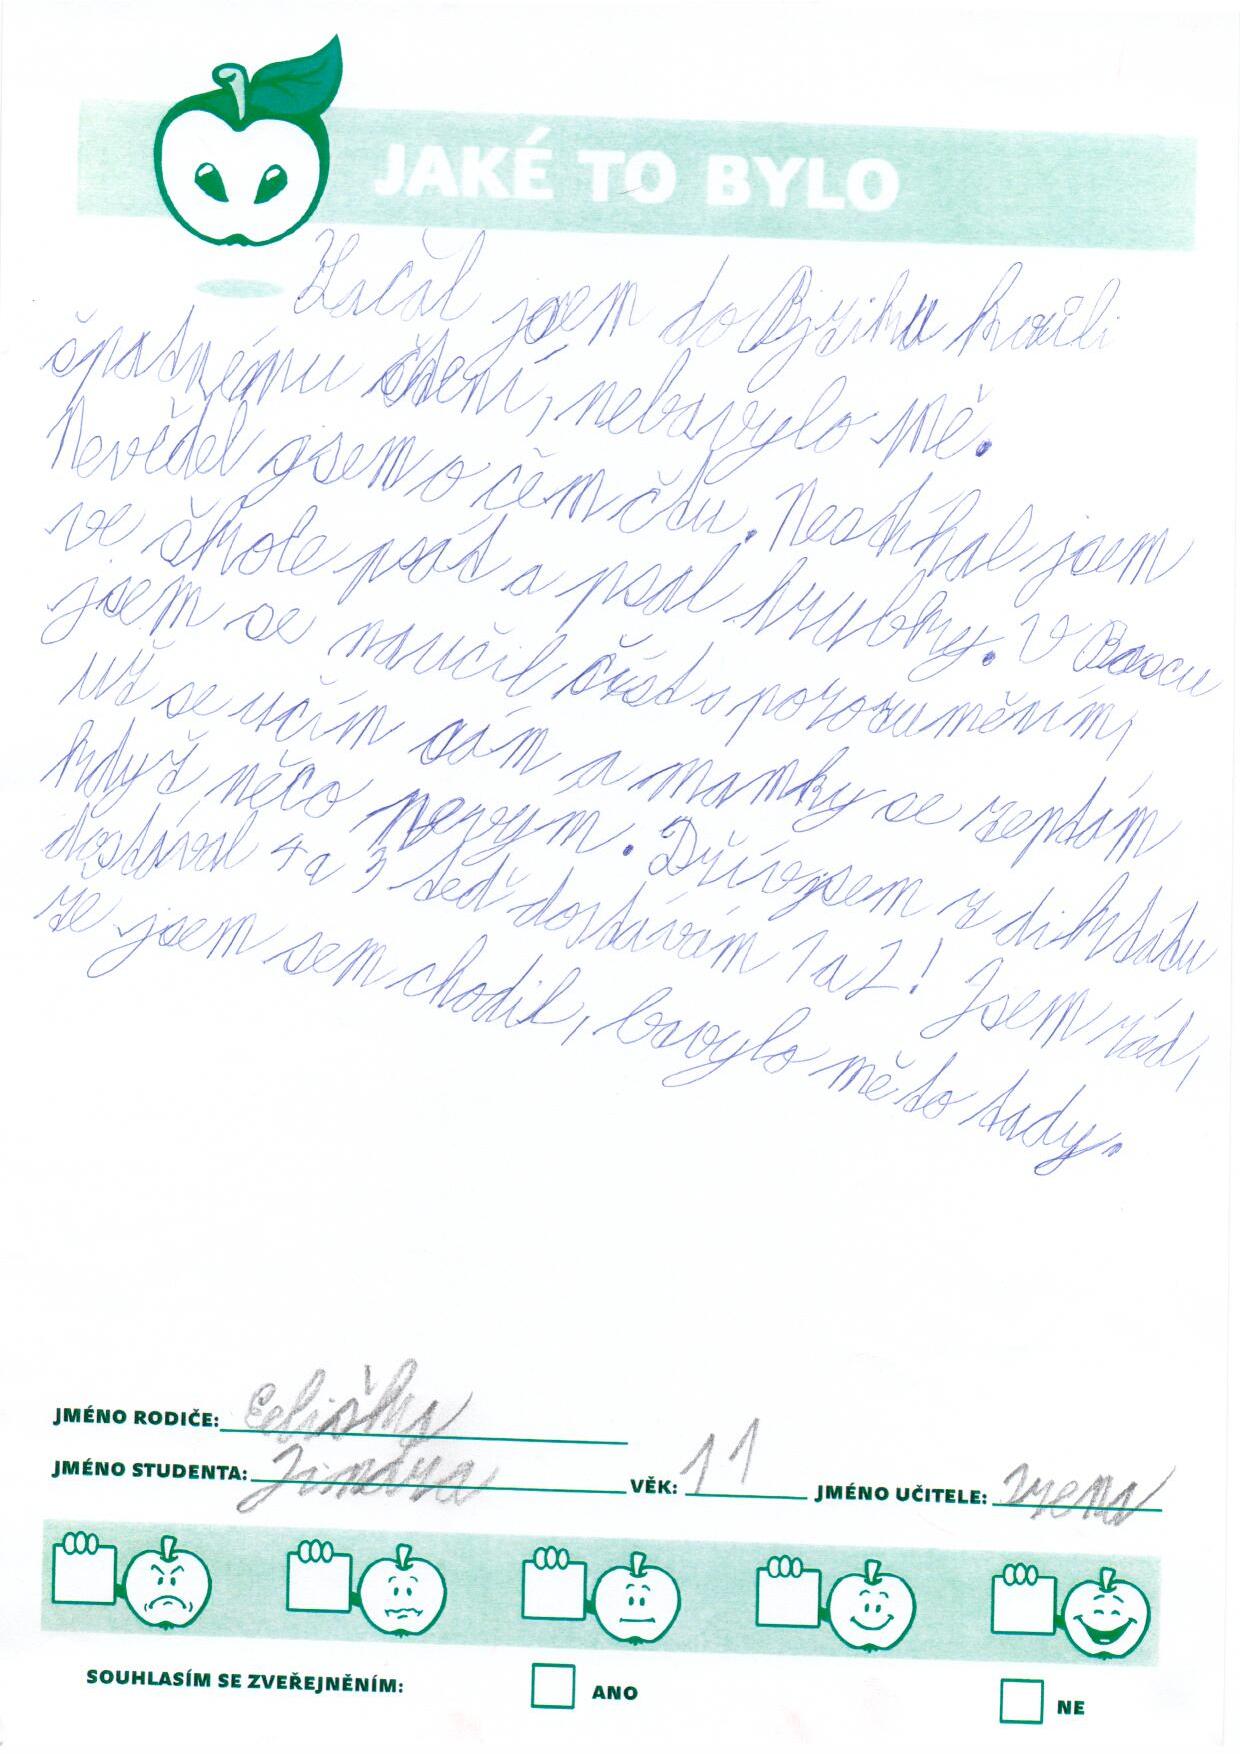 JAKÉ TO BYLO
Začal jsem do kvůli
špatnému čtení, nebavylo mě.
Nevěděl jsem o čem čtu. Nestíhal jsem
ve škole psát a psal hrubky. V Bascu
jsem se naučil číst s porozuměním,
Už se učím sám a mamky se zeptám
když něco nevym. Dřív jsem z diktátu
dostával 4 a 3 teď dostávám 1 a 2! Jsem rád,
že jsem sem chodil, bavylo mě to tady.
JMÉNO RODIČE: Eeliška
JMÉNO STUDENTA: VĚK: 11 JMÉNO UČITELE: Irena
SOUHLASÍM SE ZVEŘEJNĚNÍM: ANO NE